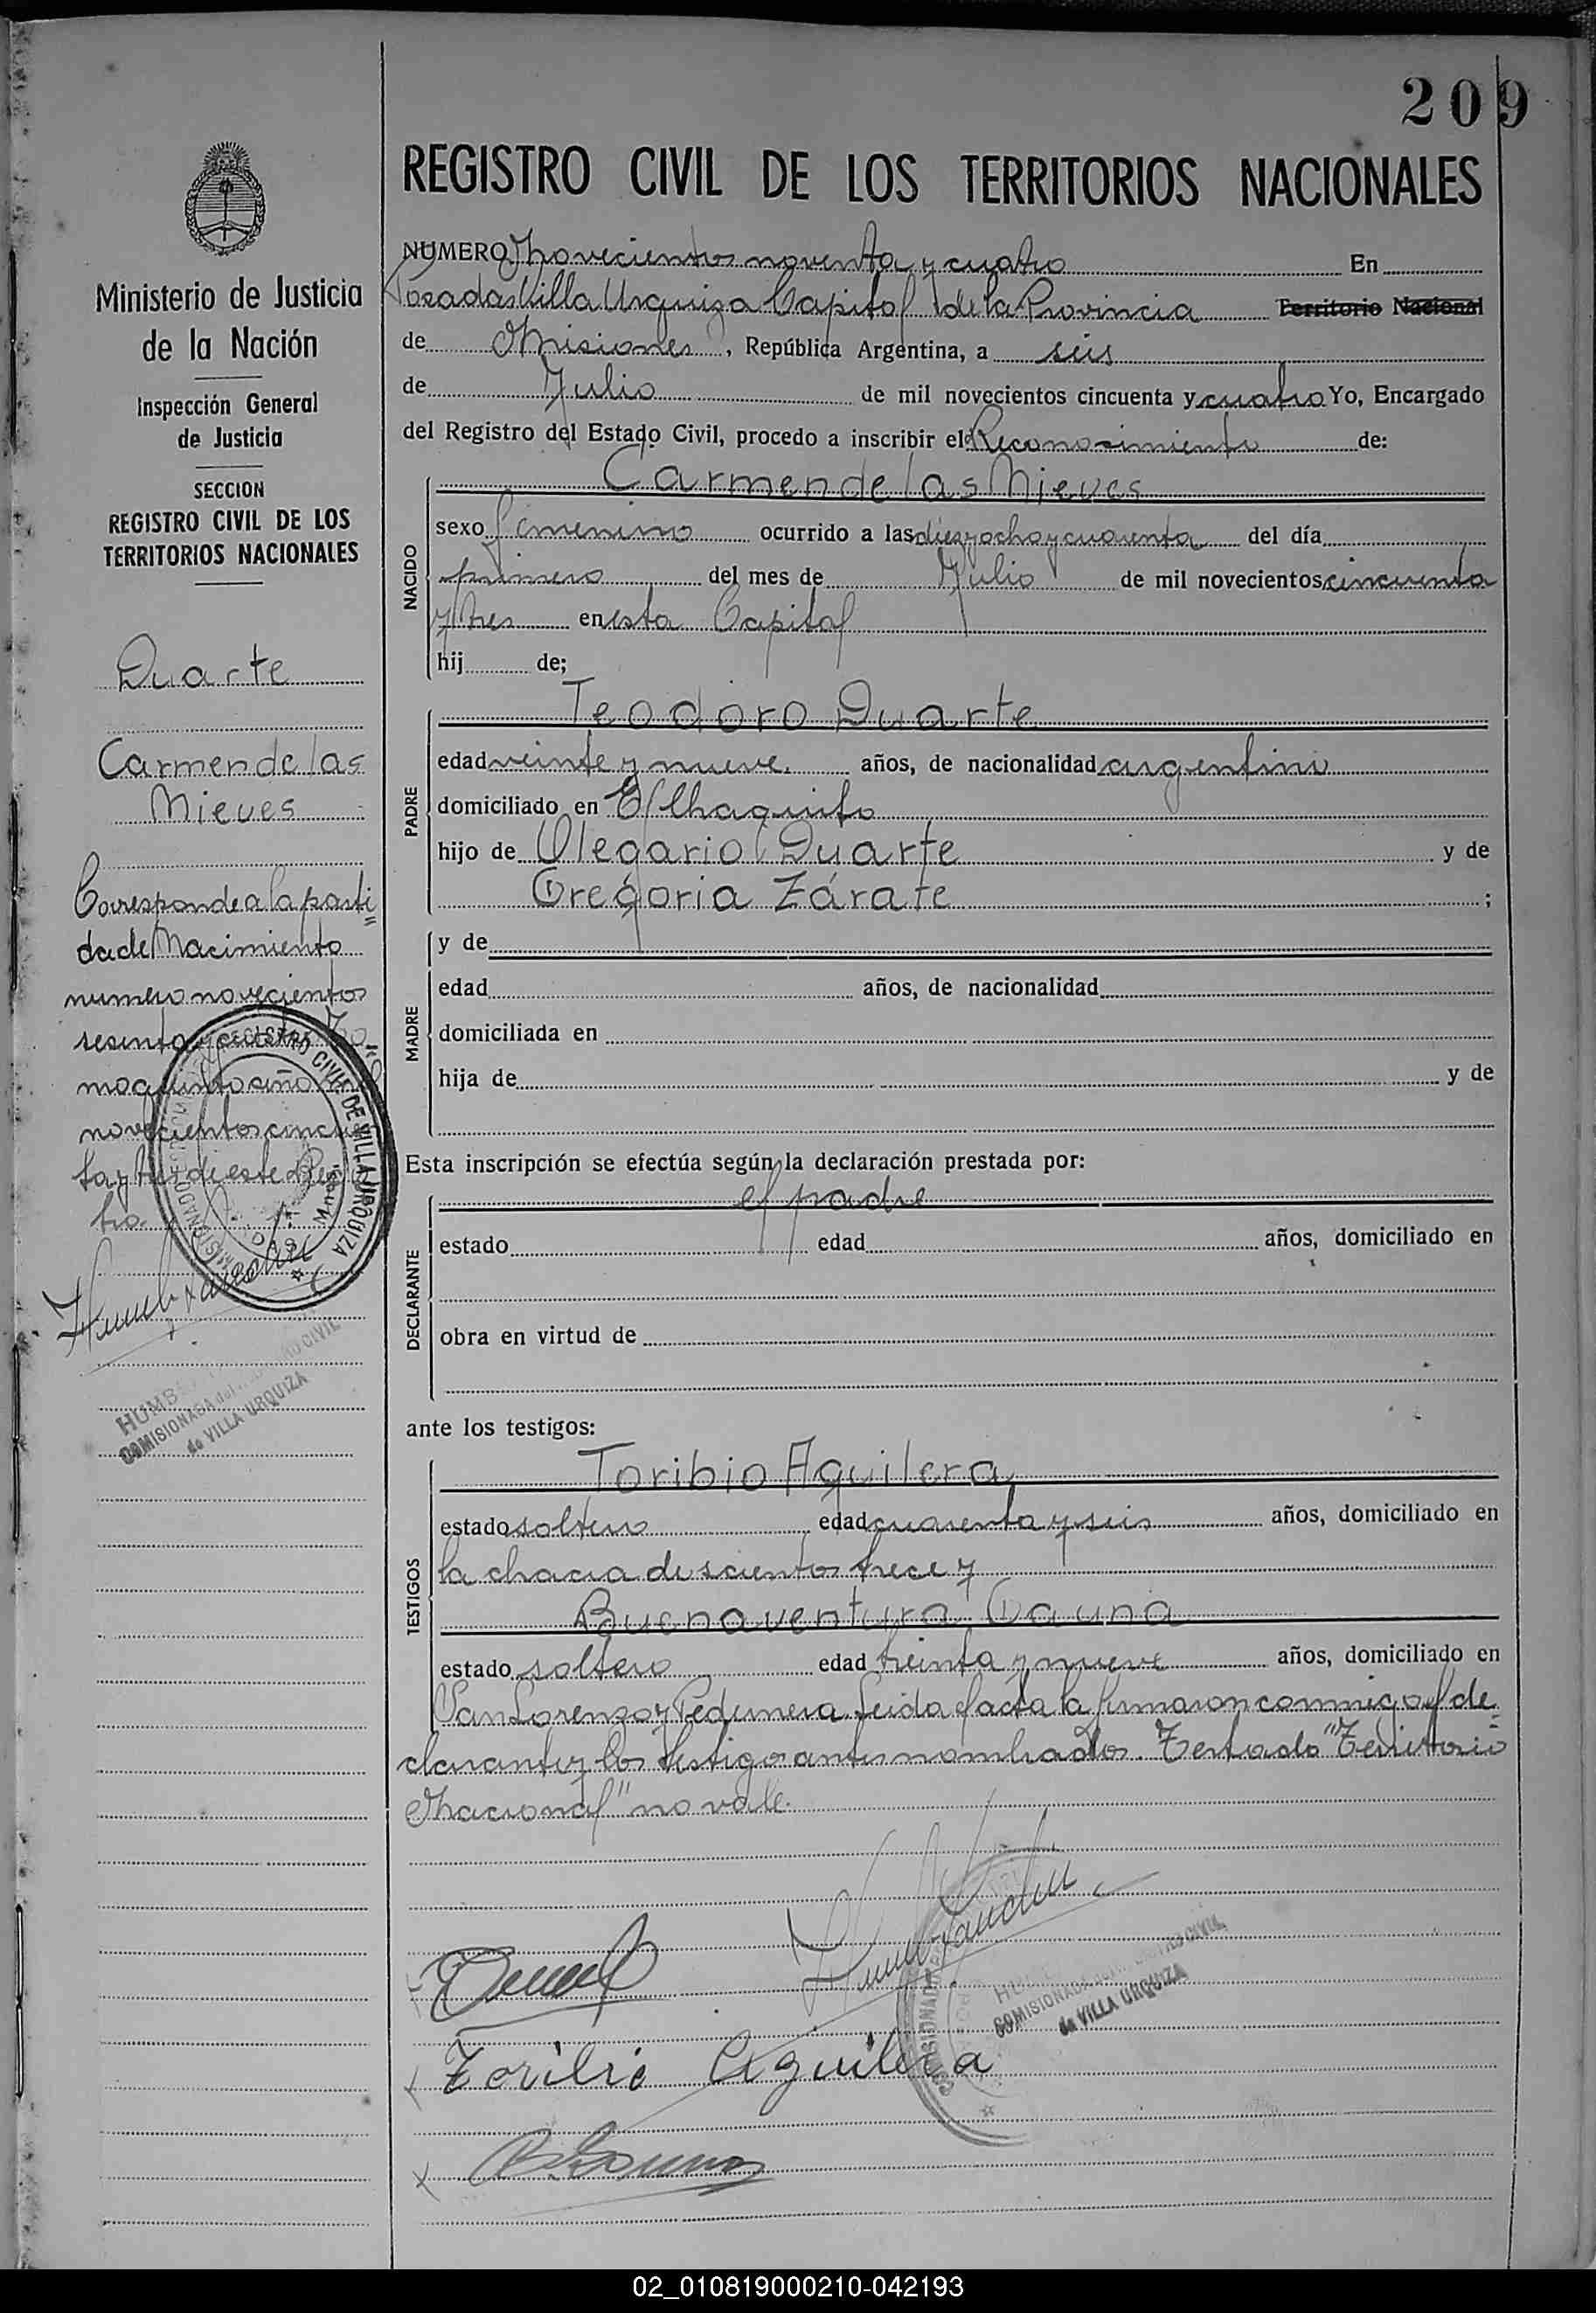 209
REGISTRO CIVIL DE LOS TERRITORIOS NACIONALES
Ministerio de Justicia
de la Nación
Inspección General
de Justicia
SECCION
REGISTRO CIVIL DE LOS
TERRITORIOS NACIONALES
Duarte
Carmen de las
Nieves
Corresponde a la parti
da de Nacimiento
numero novecientos
sesenta y
mo quinto año
novecientos cincuen
ta y tres de este Regis
tro.
REGISTRO CIVIL DE VILLA URQUIZA
COMISIONADO
HUMB
COMISIONADA del CIVIL
de VILLA URQUIZA
NUMERO Novecientos noventa y cuatro En
Posadas Villa Urquiza Capital de la Provincia Territorio Nacional
de Misiones, República Argentina, a seis
de Julio de mil novecientos cincuenta y cuatro Yo, Encargado
del Registro del Estado Civil, procedo a inscribir el Reconocimiento de:
NACIDO
Carmen de las Nieves
sexo femenino ocurrido a las diez y ocho y cuarenta del día
primero del mes de Julio de mil novecientos cincuenta
y tres en esta Capital
hij de;
PADRE
Teodoro Duarte
edad veinte y nueve años, de nacionalidad argentino
domiciliado en El Chaquito
hijo de Olegario Duarte y de
Gregoria Zárate ;
MADRE
y de
edad años, de nacionalidad
domiciliada en
hija de y de
Esta inscripción se efectúa según la declaración prestada por:
DECLARANTE
el padre
estado edad años, domiciliado en
obra en virtud de
ante los testigos:
TESTIGOS
Toribio Aguilera
estado soltero edad cuarenta y seis años, domiciliado en
la chacra doscientos trece y
Buenaventura Gauna
estado soltero edad treinta y nueve años, domiciliado en
San Lorenzo y Pedernera. Leida el acta la firmaron conmigo el de
clarante y los testigos antes nombrados. Testado "Territorio
Nacional" no vale.
COMISIONADA CIVIL
de VILLA URQUIZA
Toribio Aguilera
B. Gauna
02_010819000210-042193